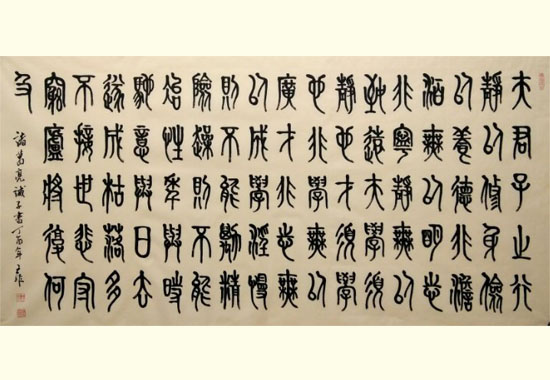 夫君子之行
靜以修身儉
以養德非澹
泊無以明志
非寧靜無以
致遠夫學須
靜也才須學
也非學無以
廣才非志無
以成學淫慢
則不能勵精
險躁則不能
冶性年與時
馳意與日去
遂成枯落多
不接世悲守
窮廬將復何
及
諸葛亮誡子書丁酉年